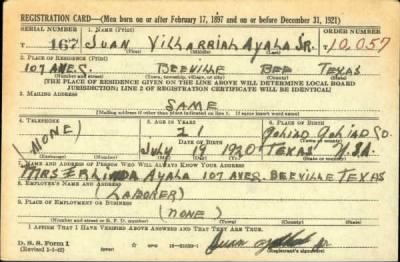 REGISTRATION CARD—(Men born on or after February 17, 1897 and on or before December 31, 1921)
SERIAL NUMBER 1. NAME (Print) ORDER NUMBER
T 167 JUAN VILLARRIAL AYALA JR. 10,057
(First) (Middle) (Last)
2. PLACE OF RESIDENCE (Print)
107 AVE S. BEEVILLE BEE TEXAS
(Number and street) (Town, township, village, or city) (County) (State)
[THE PLACE OF RESIDENCE GIVEN ON THE LINE ABOVE WILL DETERMINE LOCAL BOARD
JURISDICTION; LINE 2 OF REGISTRATION CERTIFICATE WILL BE IDENTICAL]
3. MAILING ADDRESS
SAME
[Mailing address if other than place indicated on line 2. If same insert word same]
4. TELEPHONE 5. AGE IN YEARS 6. PLACE OF BIRTH
(NONE) 21 GOLIAD GOLIAD CO.
DATE OF BIRTH (Town or county)
JULY 19 1920 TEXAS U.S.A.
(Exchange) (Number) (Mo.) (Day) (Yr.) (State or country)
7. NAME AND ADDRESS OF PERSON WHO WILL ALWAYS KNOW YOUR ADDRESS
MRS ERLINDA AYALA 107 AVE S. BEEVILLE TEXAS
8. EMPLOYER'S NAME AND ADDRESS
(LABORER)
9. PLACE OF EMPLOYMENT OR BUSINESS
(NONE)
(Number and street or R. F. D. number) (Town) (County) (State)
I AFFIRM THAT I HAVE VERIFIED ABOVE ANSWERS AND THAT THEY ARE TRUE.
D. S. S. Form 1
(Revised 1-1-42) (over) Juan Jr.
(Registrant's signature)